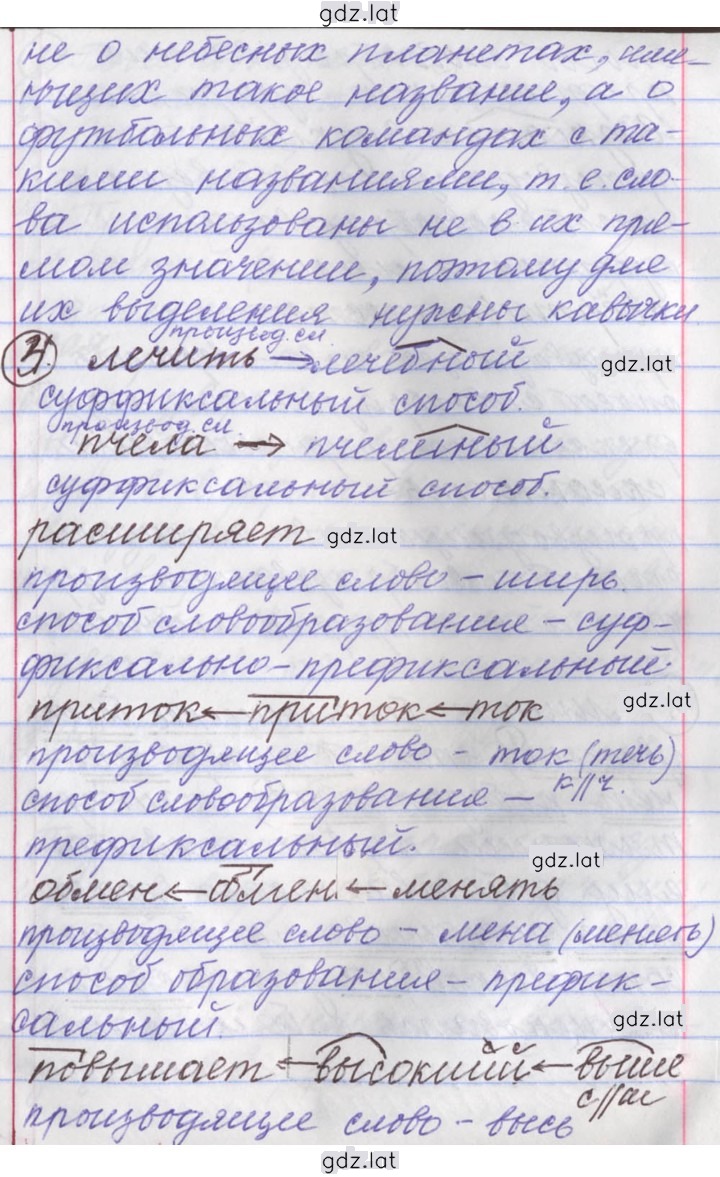 gdz.lat
не о небесных планетах, име-
ющих такое название, а о
футбольных командах с та-
кими названиями, т.е. сло-
ва использованы не в их пря-
мом значении, поэтому для
их выделения нужны кавычки
производ.сл.
4. лечить → лечебный
gdz.lat
суффиксальный способ.
производ.сл.
пчела → пчелиный
суффиксальный способ.
расширяет gdz.lat
производящее слово - ширь.
способ словообразования - суф-
фиксально-префиксальный.
gdz.lat
приток ← приток ← ток
производящее слово - ток (течь)
способ словообразования - к//ч.
префиксальный.
gdz.lat
обмен ← обмен ← менять
производящее слово - мена (менять)
способ образования - префик-
сальный.
gdz.lat
повышает ← высокий ← выше
с//ш
производящее слово - высь
gdz.lat